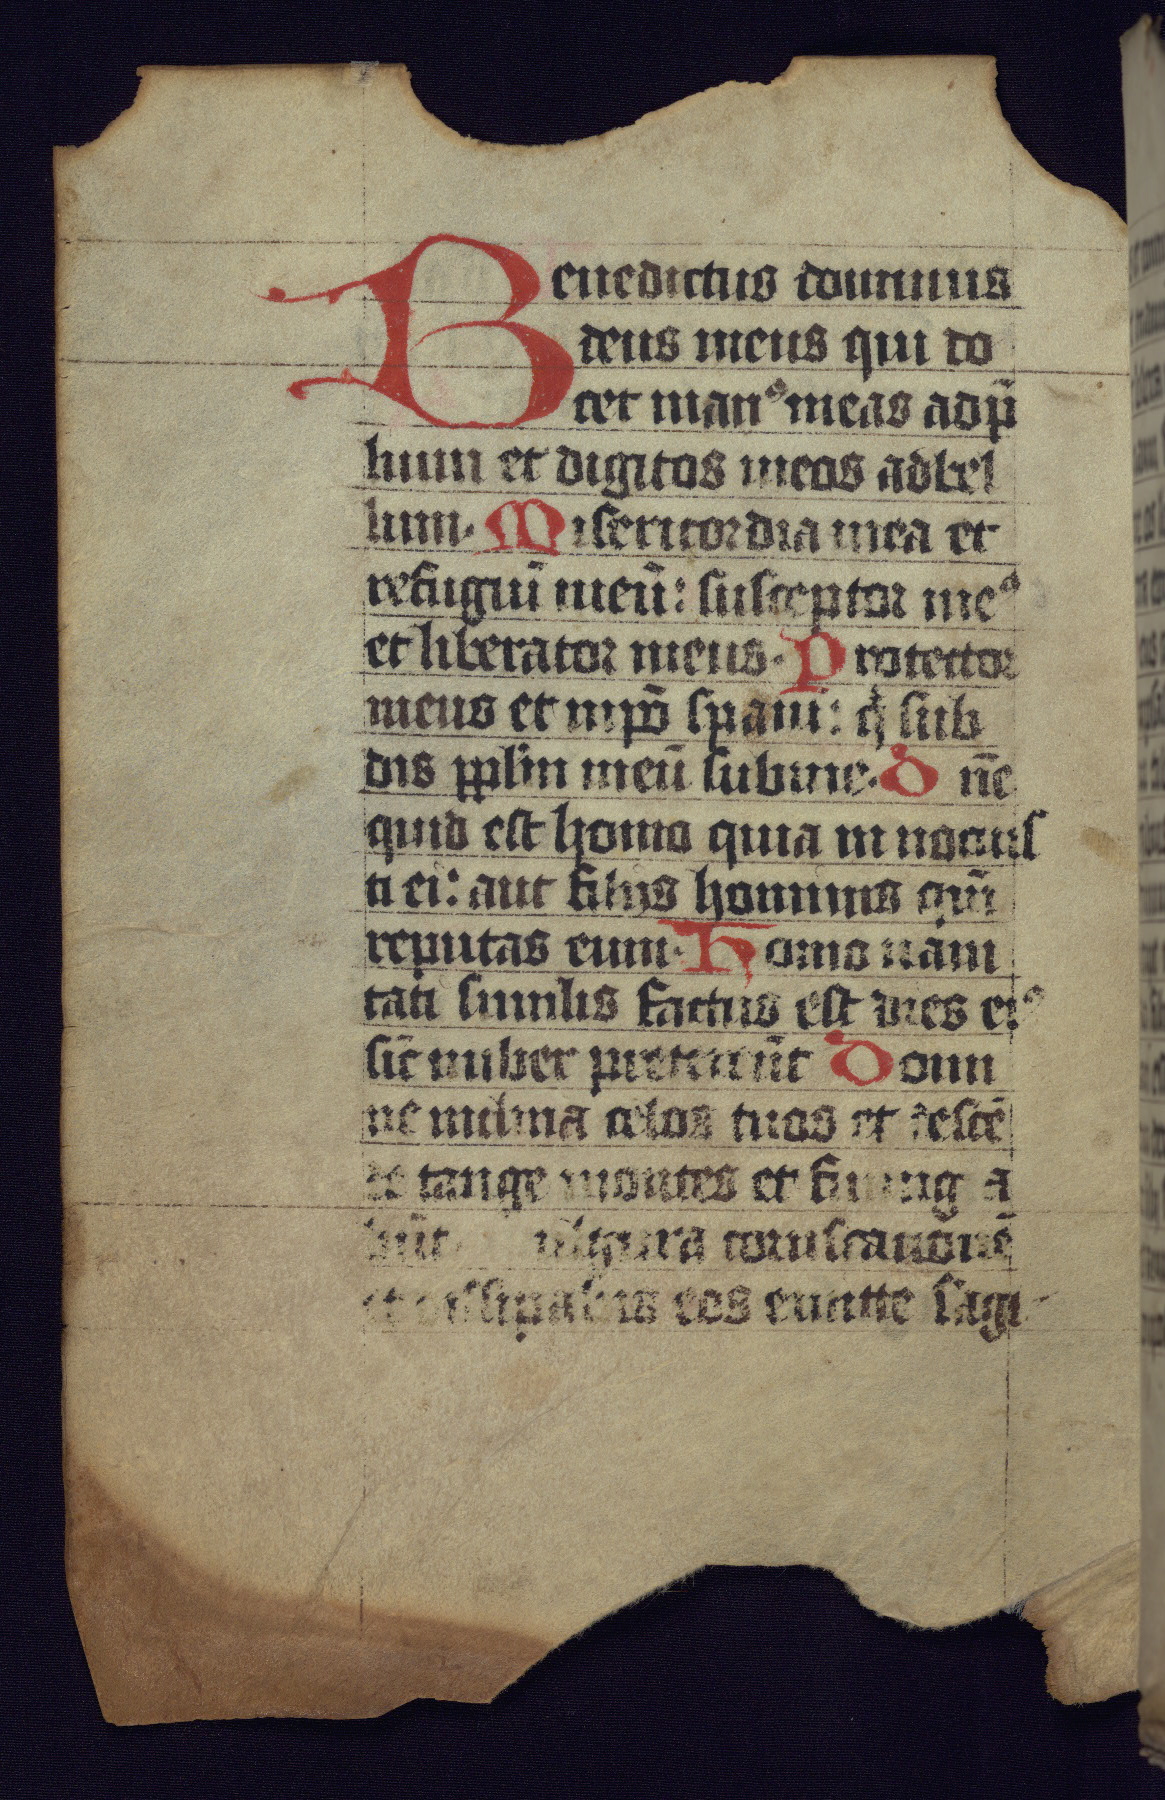 Benedictus dominus
deus meus qui do
cet manꝰ meas ad p̄
lium et digitos meos ad bel
lum. Misericordia mea et
refugiū meū: susceptor meꝰ
et liberator meus. Protector
meus et in ip̄o spaui: q̇ sub
dis pplm̄ meū sub me. D n̄e
quid est homo quia innotuis
ti ei: aut filius hominis qm̄
reputas eum. Homo uani
tati similis factus est dies eiꝰ
sic̄ umbet pretereūt Domi
ne inclina celos tuos et desce
de tange montes et fumiga
būt ulgura coruscationē
et dissipabis eos emitte sagi